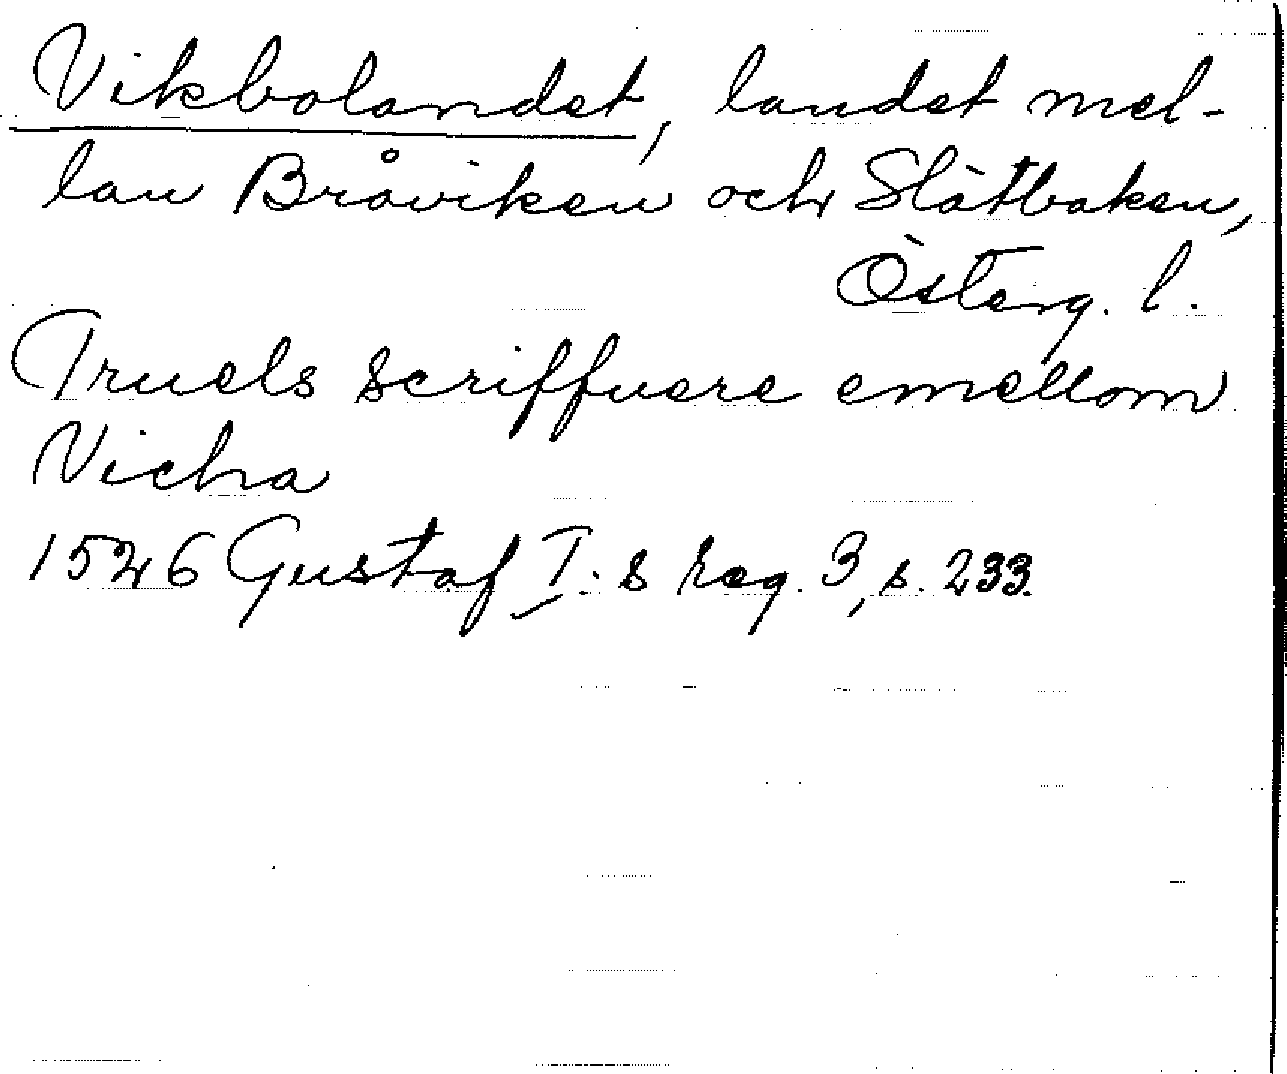 Vikbolandet, landet mel-
lan Bråviken och Slätbaken,
Österg. l.
Truels scriffuere emellom
Vicha
1526 Gustaf I:s reg. 3, s. 233.